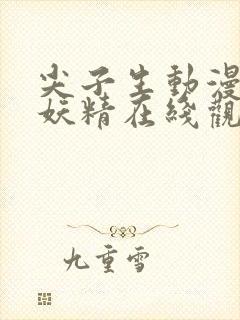 尖子生動漫
妖精在綫觀
九重雪